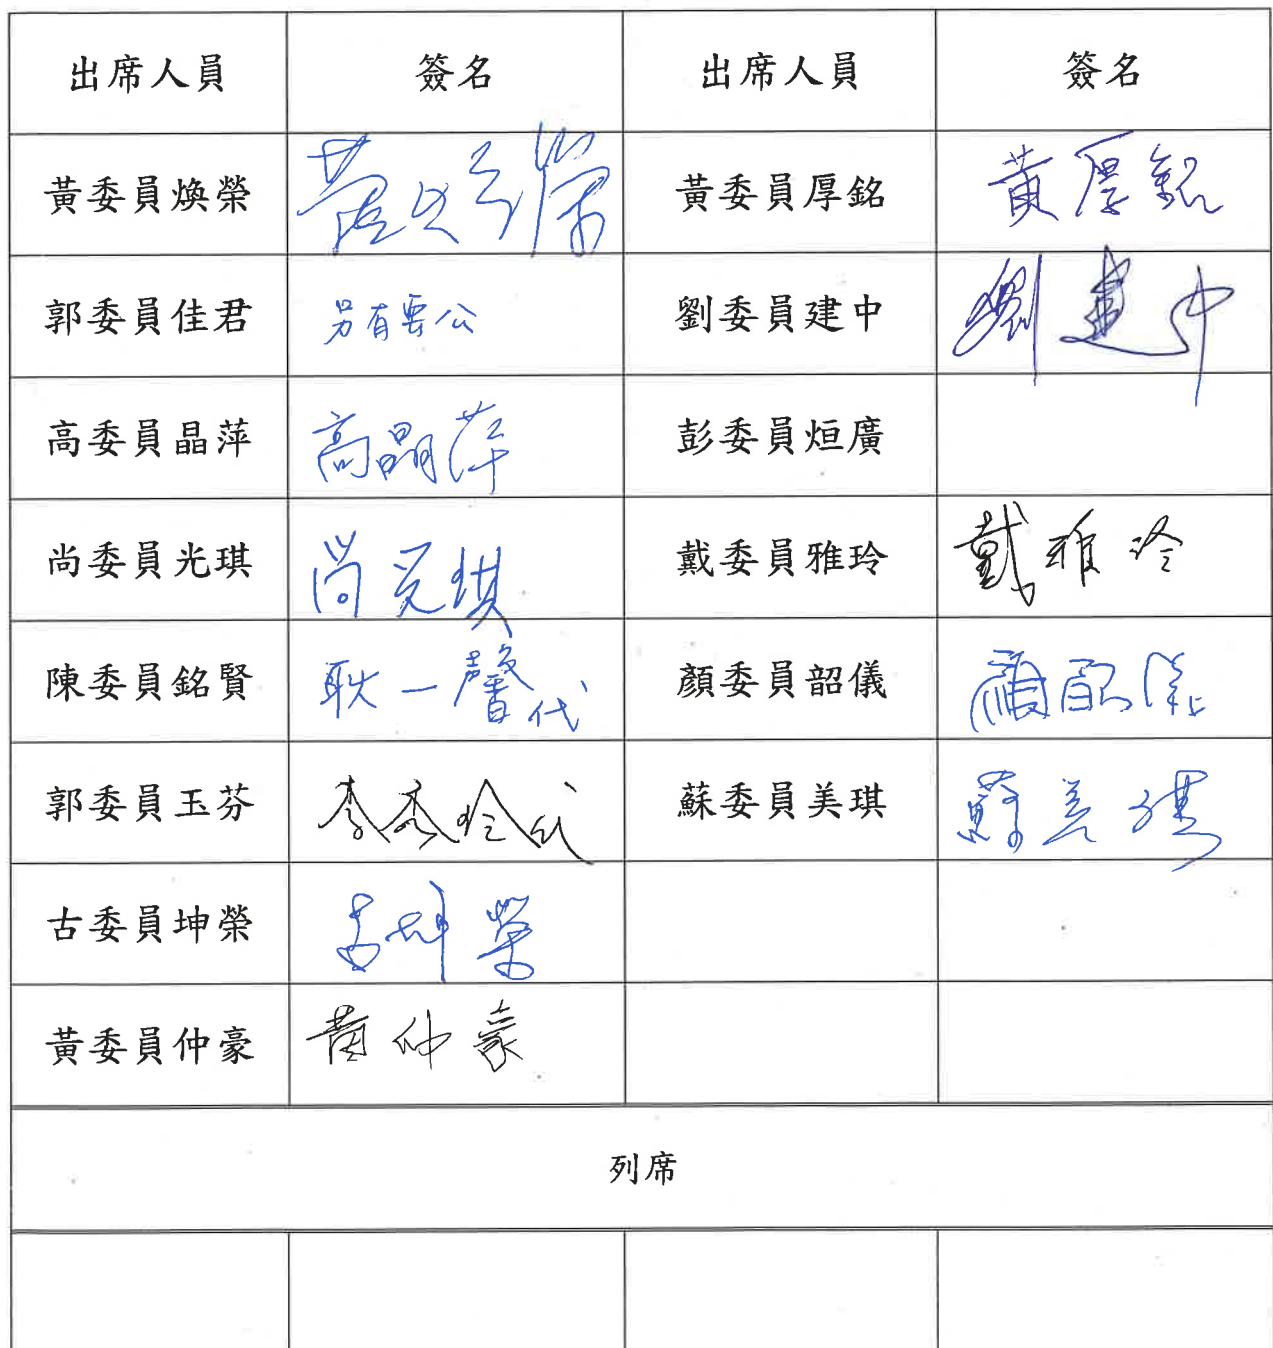 出席人員 簽名 出席人員 簽名
黃委員煥榮 黃煥榮 黃委員厚銘 黃厚銘
郭委員佳君 另有要公 劉委員建中 劉建中
高委員晶萍 高晶萍 彭委員烜廣
尚委員光琪 尚光琪 戴委員雅玲 戴雅玲
陳委員銘賢 耿一馨代 顏委員韶儀 顏韶儀
郭委員玉芬 李秀玲代 蘇委員美琪 蘇美琪
古委員坤榮 古坤榮
黃委員仲豪 黃仲豪
列席